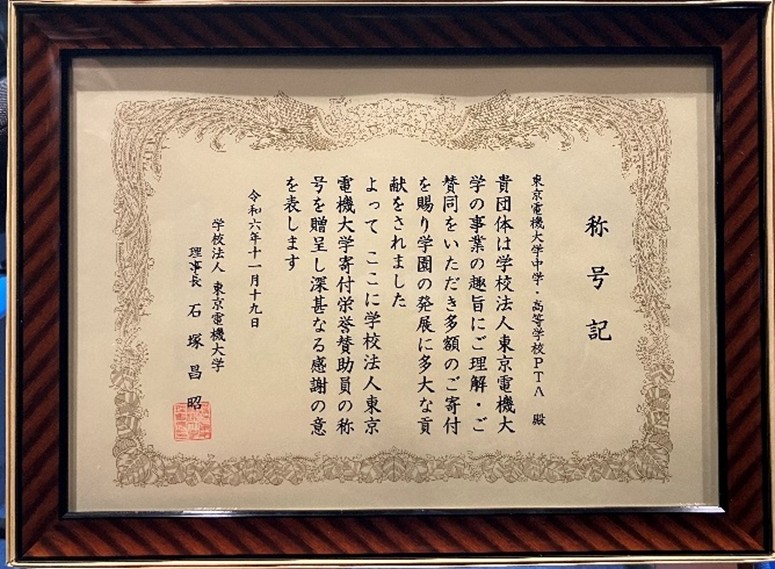 称号記
東京電機大学中学・高等学校PTA 殿
貴団体は学校法人東京電機大
学の事業の趣旨にご理解・ご
賛同をいただき多額のご寄付
を賜り学園の発展に多大な貢
献をされました
よって ここに学校法人東京
電機大学寄付栄誉賛助員の称
号を贈呈し深甚なる感謝の意
を表します
令和六年十一月十九日
学校法人 東京電機大学
理事長 石塚昌昭